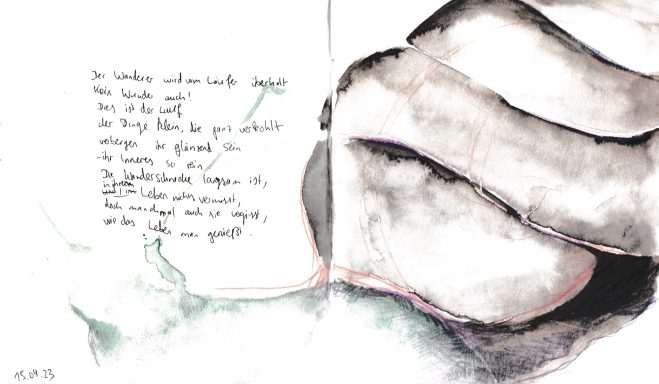 Der Wanderer wird vom Läufer überholt
Kein Wunder auch!
Dies ist der Lauf
der Dinge klein, die ganz verkohlt
verbergen ihr glänzend Sein
-ihr Inneres so rein
Die Wanderschnecke langsam ist,
in ihrem
Leben nichts vermisst,
doch manchmal auch nie vergisst,
wie das Leben man genießt.
15.04.23